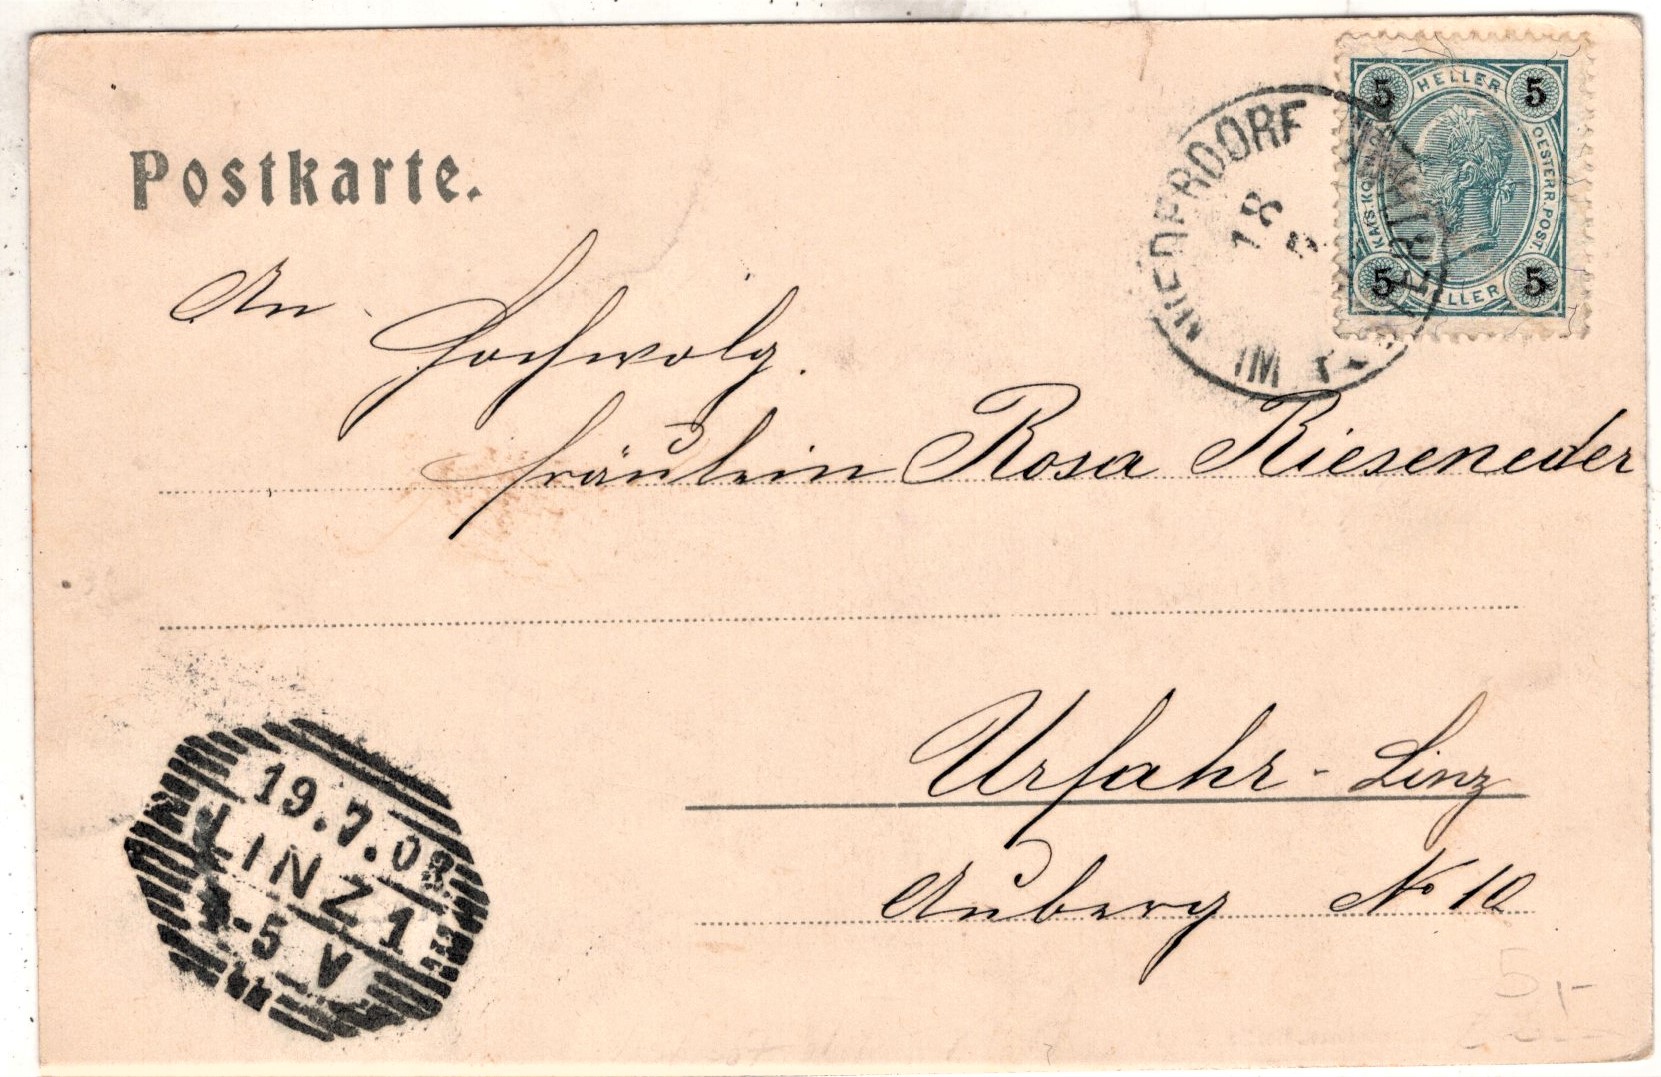 Postkarte.
HELLER
5 5
OESTERR. POST.
5 5
HELLER
NIEDERDORF
IM
18
An
Hochwolg.
Fräulein Rosa Rieseneder
Urfahr - Linz
Auberg No 10
19.7.03
LINZ 1
-5 V
5,-